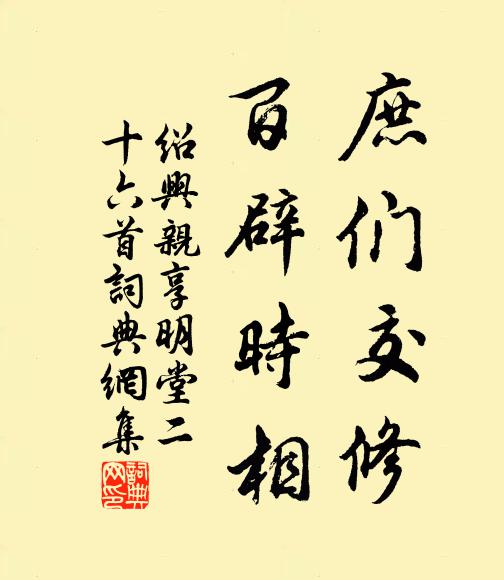 庶们交修
百辟時相
紹興親享明堂二
十六首詞典網集
詞典网印